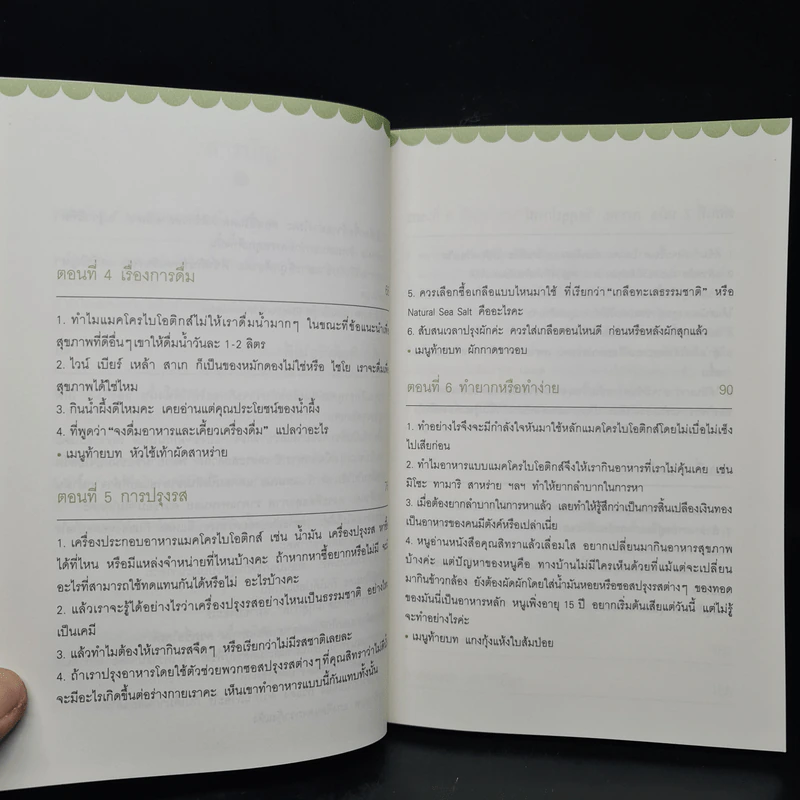 ตอนที่ 4 เรื่องการดื่ม
1. ทำไมแมคโครไบโอติกส์ไม่ให้เราดื่มน้ำมากๆ ในขณะที่ข้อแนะนำ
สุขภาพที่ดีอื่นๆเขาให้ดื่มน้ำวันละ 1-2 ลิตร
2. ไวน์ เบียร์ เหล้า สาเก ก็เป็นของหมักดองไม่ใช่หรือ ไซโย เราจะดื่ม
สุขภาพได้ใช่ไหม
3. กินน้ำผึ้งดีไหมคะ เคยอ่านแต่คุณประโยชน์ของน้ำผึ้ง
4. ที่พูดว่า“จงดื่มอาหารและเคี้ยวเครื่องดื่ม” แปลว่าอะไร
• เมนูท้ายบท หัวไช้เท้าผัดสาหร่าย
ตอนที่ 5 การปรุงรส
1. เครื่องประกอบอาหารแมคโครไบโอติกส์ เช่น น้ำมัน เครื่องปรุงรส หาซื้อ
ได้ที่ไหน หรือมีแหล่งจำหน่ายที่ไหนบ้างคะ ถ้าหากหาซื้อยากหรือไม่มี
อะไรที่สามารถใช้ทดแทนกันได้หรือไม่ อะไรบ้างคะ
2. แล้วเราจะรู้ได้อย่างไรว่าเครื่องปรุงรสอย่างไหนเป็นธรรมชาติ อย่างไหน
เป็นเคมี
3. แล้วทำไมต้องให้เรากินรสจืดๆ หรือเรียกว่าไม่มีรสชาติเลยละ
4. ถ้าเราปรุงอาหารโดยใช้ตัวช่วยพวกซอสปรุงรสต่างๆที่คุณสิทราว่าไม่ดีนั้น
จะมีอะไรเกิดขึ้นต่อร่างกายเราคะ เห็นเขาทำอาหารแบบนี้กันแทบทั้งนั้น
5. ควรเลือกซื้อเกลือแบบไหนมาใช้ ที่เรียกว่า“เกลือทะเลธรรมชาติ” หรือ
Natural Sea Salt คืออะไรคะ
6. สับสนเวลาปรุงผักค่ะ ควรใส่เกลือตอนไหนดี ก่อนหรือหลังผักสุกแล้ว
• เมนูท้ายบท ผักกาดขาวอบ
ตอนที่ 6 ทำยากหรือทำง่าย 90
1. ทำอย่างไรจึงจะมีกำลังใจหันมาใช้หลักแมคโครไบโอติกส์โดยไม่เบื่อไม่เซ็ง
ไปเสียก่อน
2. ทำไมอาหารแบบแมคโครไบโอติกส์จึงให้เรากินอาหารที่เราไม่คุ้นเคย เช่น
มิโซะ ทามาริ สาหร่าย ฯลฯ ทำให้ยากลำบากในการหา
3. เมื่อต้องยากลำบากในการหาแล้ว เลยทำให้รู้สึกว่าเป็นการสิ้นเปลืองเงินทอง
เป็นอาหารของคนมีตังค์หรือเปล่าเนี่ย
4. หนูอ่านหนังสือคุณสิทราแล้วเลื่อมใส อยากเปลี่ยนมากินอาหารสุขภาพ
บ้างค่ะ แต่ปัญหาของหนูคือ ทางบ้านไม่มีใครเห็นด้วยที่แม้แต่จะเปลี่ยน
มากินข้าวกล้อง ยังต้องผัดผักโดยใส่น้ำมันหอยหรือซอสปรุงรสต่างๆ ของทอด
ของมันนี่เป็นอาหารหลัก หนูเพิ่งอายุ 15 ปี อยากเริ่มต้นเสียแต่วันนี้ แต่ไม่รู้
จะทำอย่างไรค่ะ
• เมนูท้ายบท แกงกุ้งแห้งใบส้มป่อย